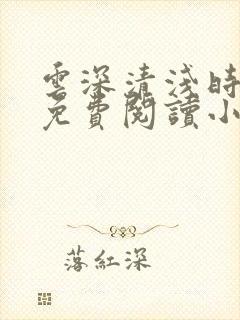 雲深清淺時
免費閱讀小
落紅深